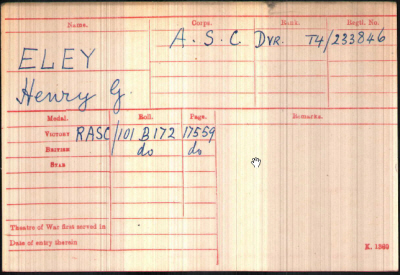 Name. Corps. Rank. Regtl. No.
ELEY A.S.C. Dvr. T4/233846
Henry G.
Medal. Roll. Page. Remarks.
Victory RASC/101 B172 17559
British do do
Star
Theatre of War first served in
Date of entry therein
K. 1380